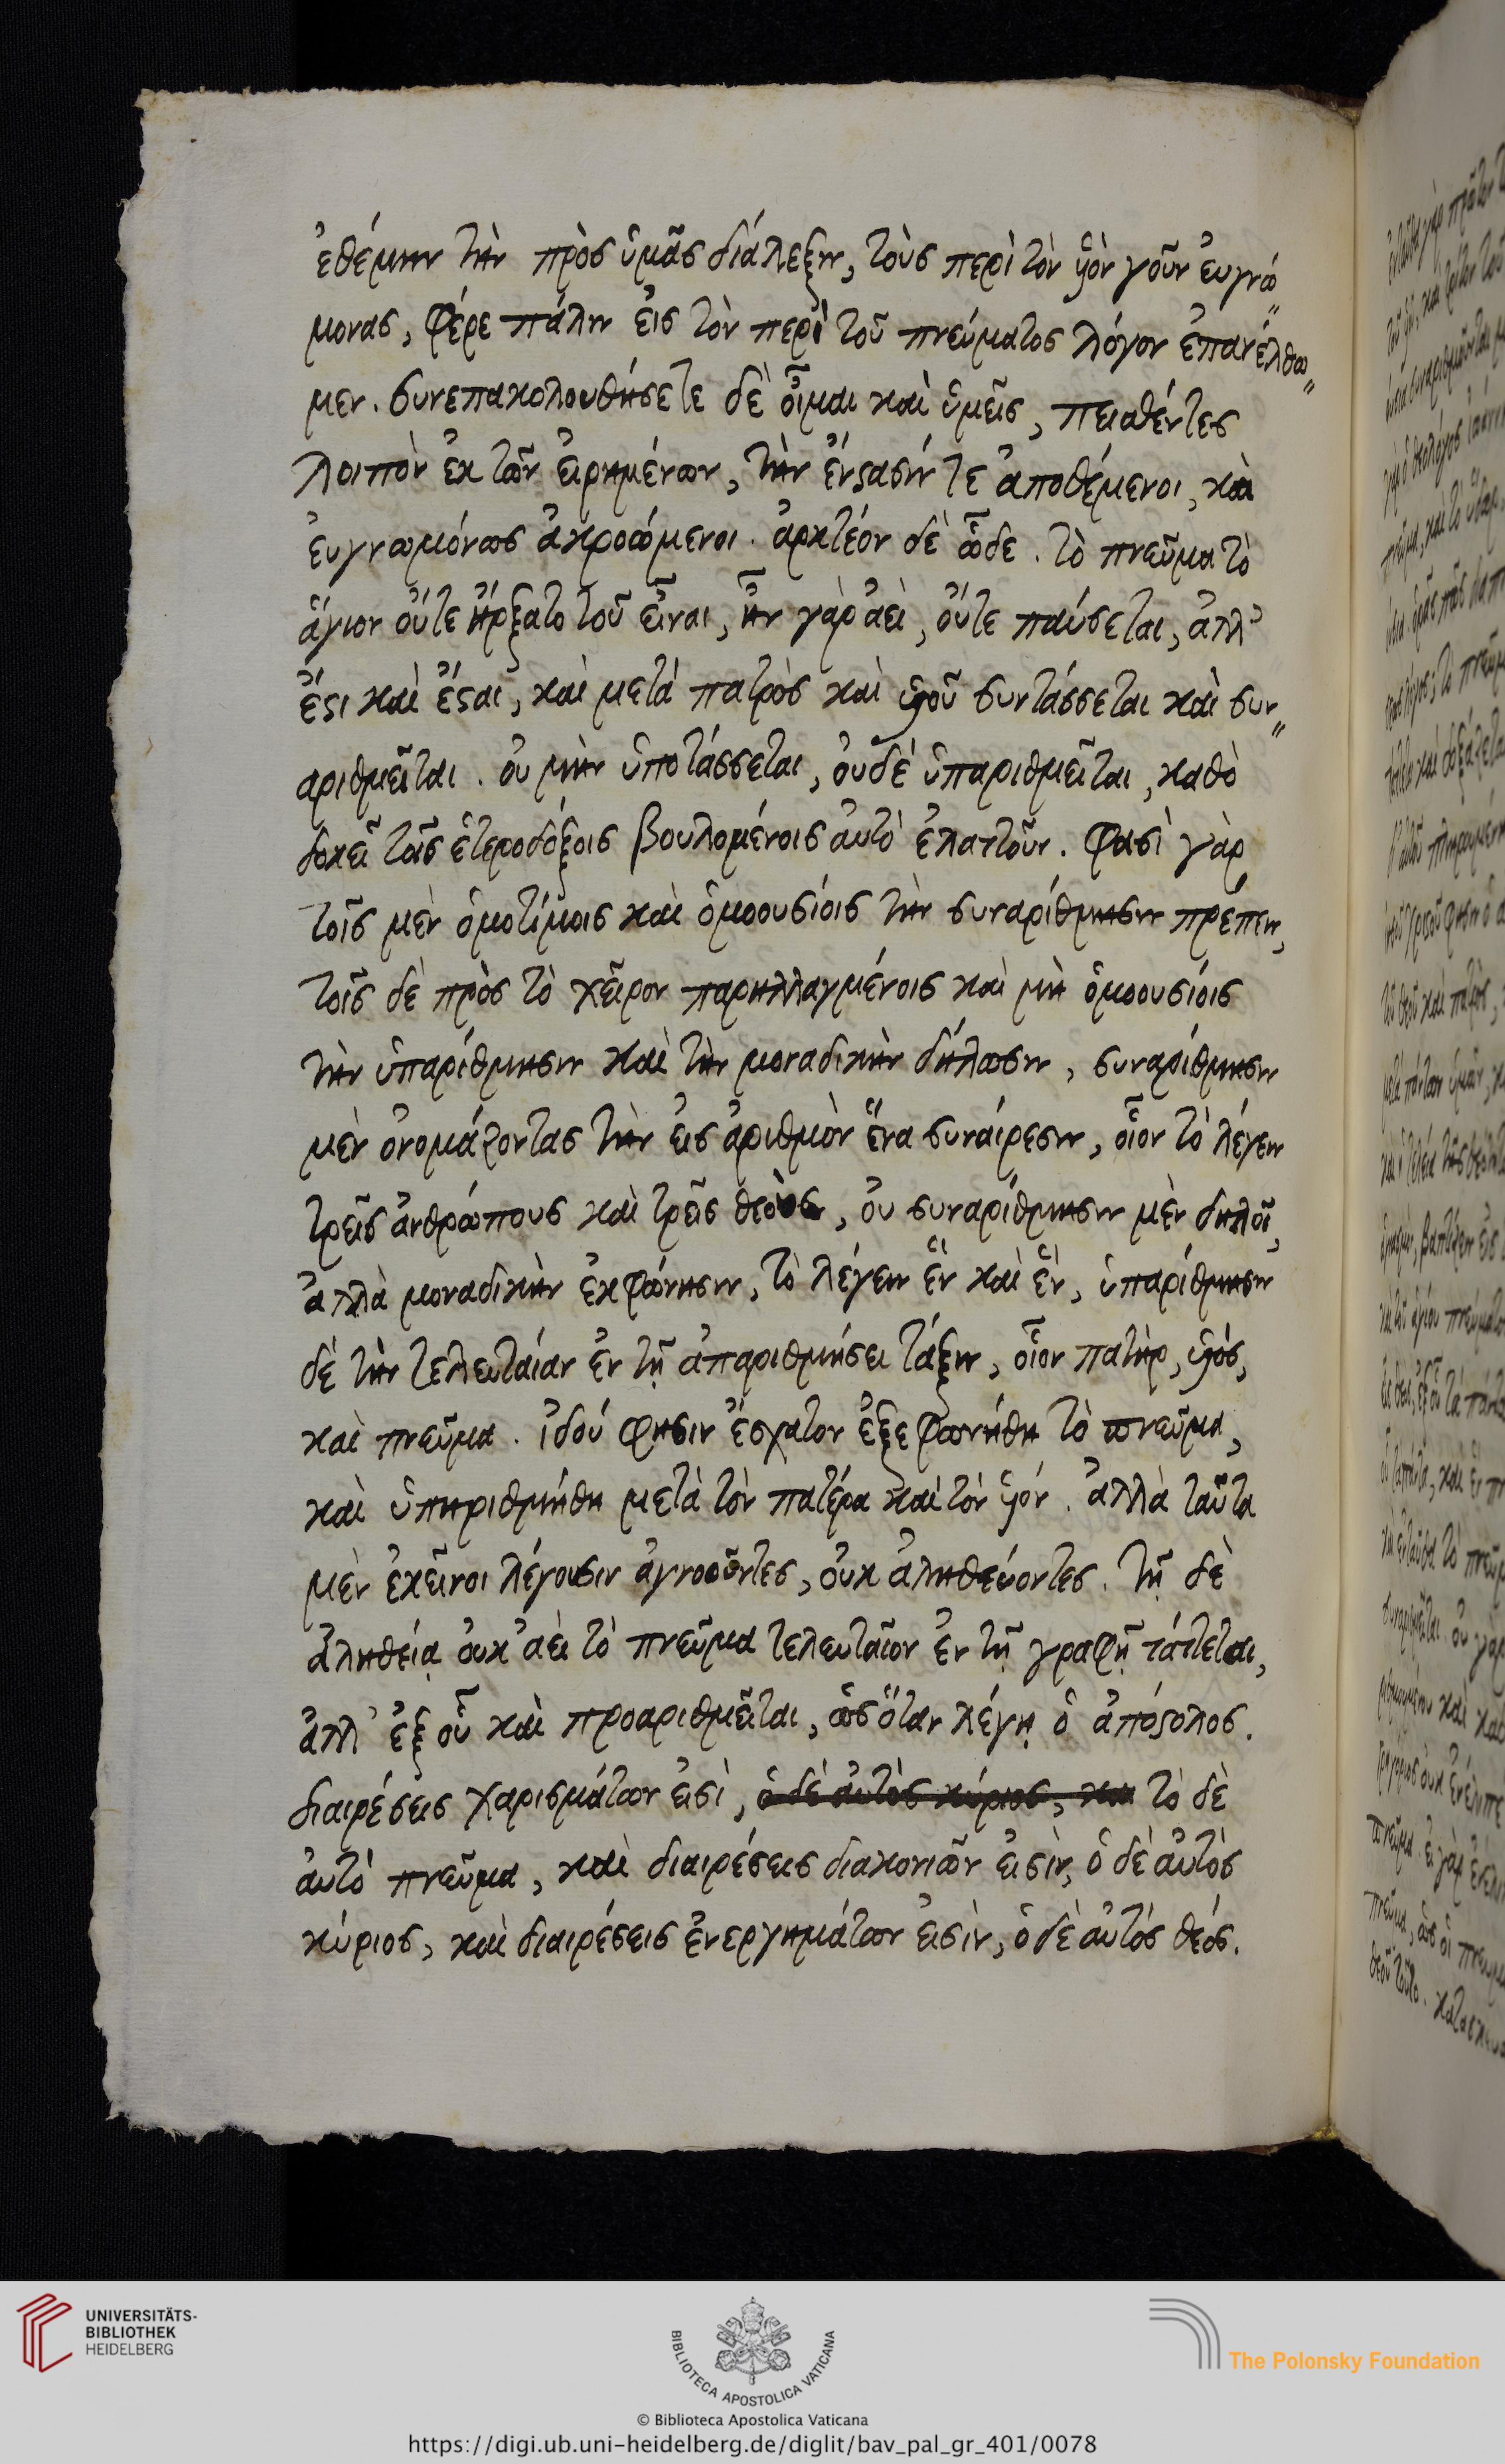 ἐθέμην τὴν πρὸς ὑμᾶς διάλεξιν, τοὺς περὶ τὸν υἱὸν γοῦν εὐγνώ
μονας, φέρε πάλιν εἰς τὸν περὶ τοῦ πνεύματος λόγον ἐπανέλθω
μεν. συνεπακολουθήσετε δὲ οἶμαι καὶ ὑμεῖς, πεισθέντες
λοιπὸν ἐκ τῶν εἰρημένων, τὴν ἔνστασίν τε ἀποθέμενοι, καὶ
εὐγνωμόνως ἀκροώμενοι. ἀρκτέον δὲ ὧδε. τὸ πνεῦμα τὸ
ἅγιον οὔτε ἤρξατο τοῦ εἶναι, ἦν γὰρ ἀεὶ, οὔτε παύσεται, ἀλλ'
ἔστι καὶ ἔσται, καὶ μετὰ πατρὸς καὶ υἱοῦ συντάσσεται καὶ συν
αριθμεῖται. οὐ μὴν ὑποτάσσεται, οὐδὲ ὑπαριθμεῖται, καθὸ
δοκεῖ τοῖς ἑτεροδόξοις βουλομένοις αὐτὸ ἐλαττοῦν. φασὶ γὰρ
τοῖς μὲν ὁμοτίμοις καὶ ὁμοουσίοις τὴν συναρίθμησιν πρέπειν,
τοῖς δὲ πρὸς τὸ χεῖρον παρηλλαγμένοις καὶ μὴ ὁμοουσίοις
τὴν ὑπαρίθμησιν καὶ τὴν μοναδικὴν δήλωσιν, συναρίθμησιν
μὲν ὀνομάζοντας τὴν εἰς ἀριθμὸν ἕνα συναίρεσιν, οἷον τὸ λέγειν
τρεῖς ἀνθρώπους καὶ τρεῖς θεοὺς, οὐ συναρίθμησιν μὲν δηλοῖ,
ἀλλὰ μοναδικὴν ἐκφώνησιν, τὸ λέγειν ἓν καὶ ἓν, ὑπαρίθμησιν
δὲ τὴν τελευταίαν ἐν τῇ ἀπαριθμήσει τάξιν, οἷον πατὴρ, υἱός,
καὶ πνεῦμα. ἰδού φησιν ἔσχατον ἐξεφωνήθη τὸ πνεῦμα,
καὶ ὑπηριθμήθη μετὰ τὸν πατέρα καὶ τὸν υἱόν. ἀλλὰ ταῦτα
μὲν ἐκεῖνοι λέγουσιν ἀγνοοῦντες, οὐκ ἀληθεύοντες. τῇ δὲ
ἀληθείᾳ οὐκ ἀεὶ τὸ πνεῦμα τελευταῖον ἐν τῇ γραφῇ τάττεται,
ἀλλ' ἐξ οὗ καὶ προαριθμεῖται, ὡς ὅταν λέγῃ ὁ ἀπόστολος.
διαιρέσεις χαρισμάτων εἰσὶ, ὁ δὲ αὐτὸς κύριος, και τὸ δὲ
αὐτὸ πνεῦμα, καὶ διαιρέσεις διακονιῶν εἰσὶν, ὁ δὲ αὐτὸς
κύριος, καὶ διαιρέσεις ἐνεργημάτων εἰσὶν, ὁ δὲ αὐτός θεός.
UNIVERSITÄTS-
BIBLIOTHEK
HEIDELBERG
BIBLIOTECA APOSTOLICA VATICANA
The Polonsky Foundation
© Biblioteca Apostolica Vaticana
https://digi.ub.uni-heidelberg.de/diglit/bav_pal_gr_401/0078